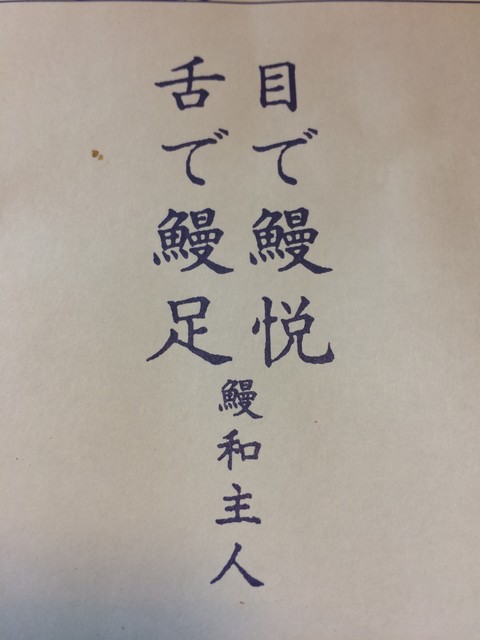 目で鰻悦
舌で鰻足
鰻和主人